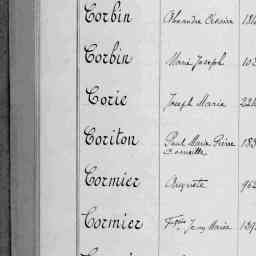 Corbin Alexandre
Corbin Marie Joseph 103
Corie Joseph Marie 224
Coriton Paul Marie Pierre 183
Cormier Auguste 962
Cormier Fçois Jean Marie 139